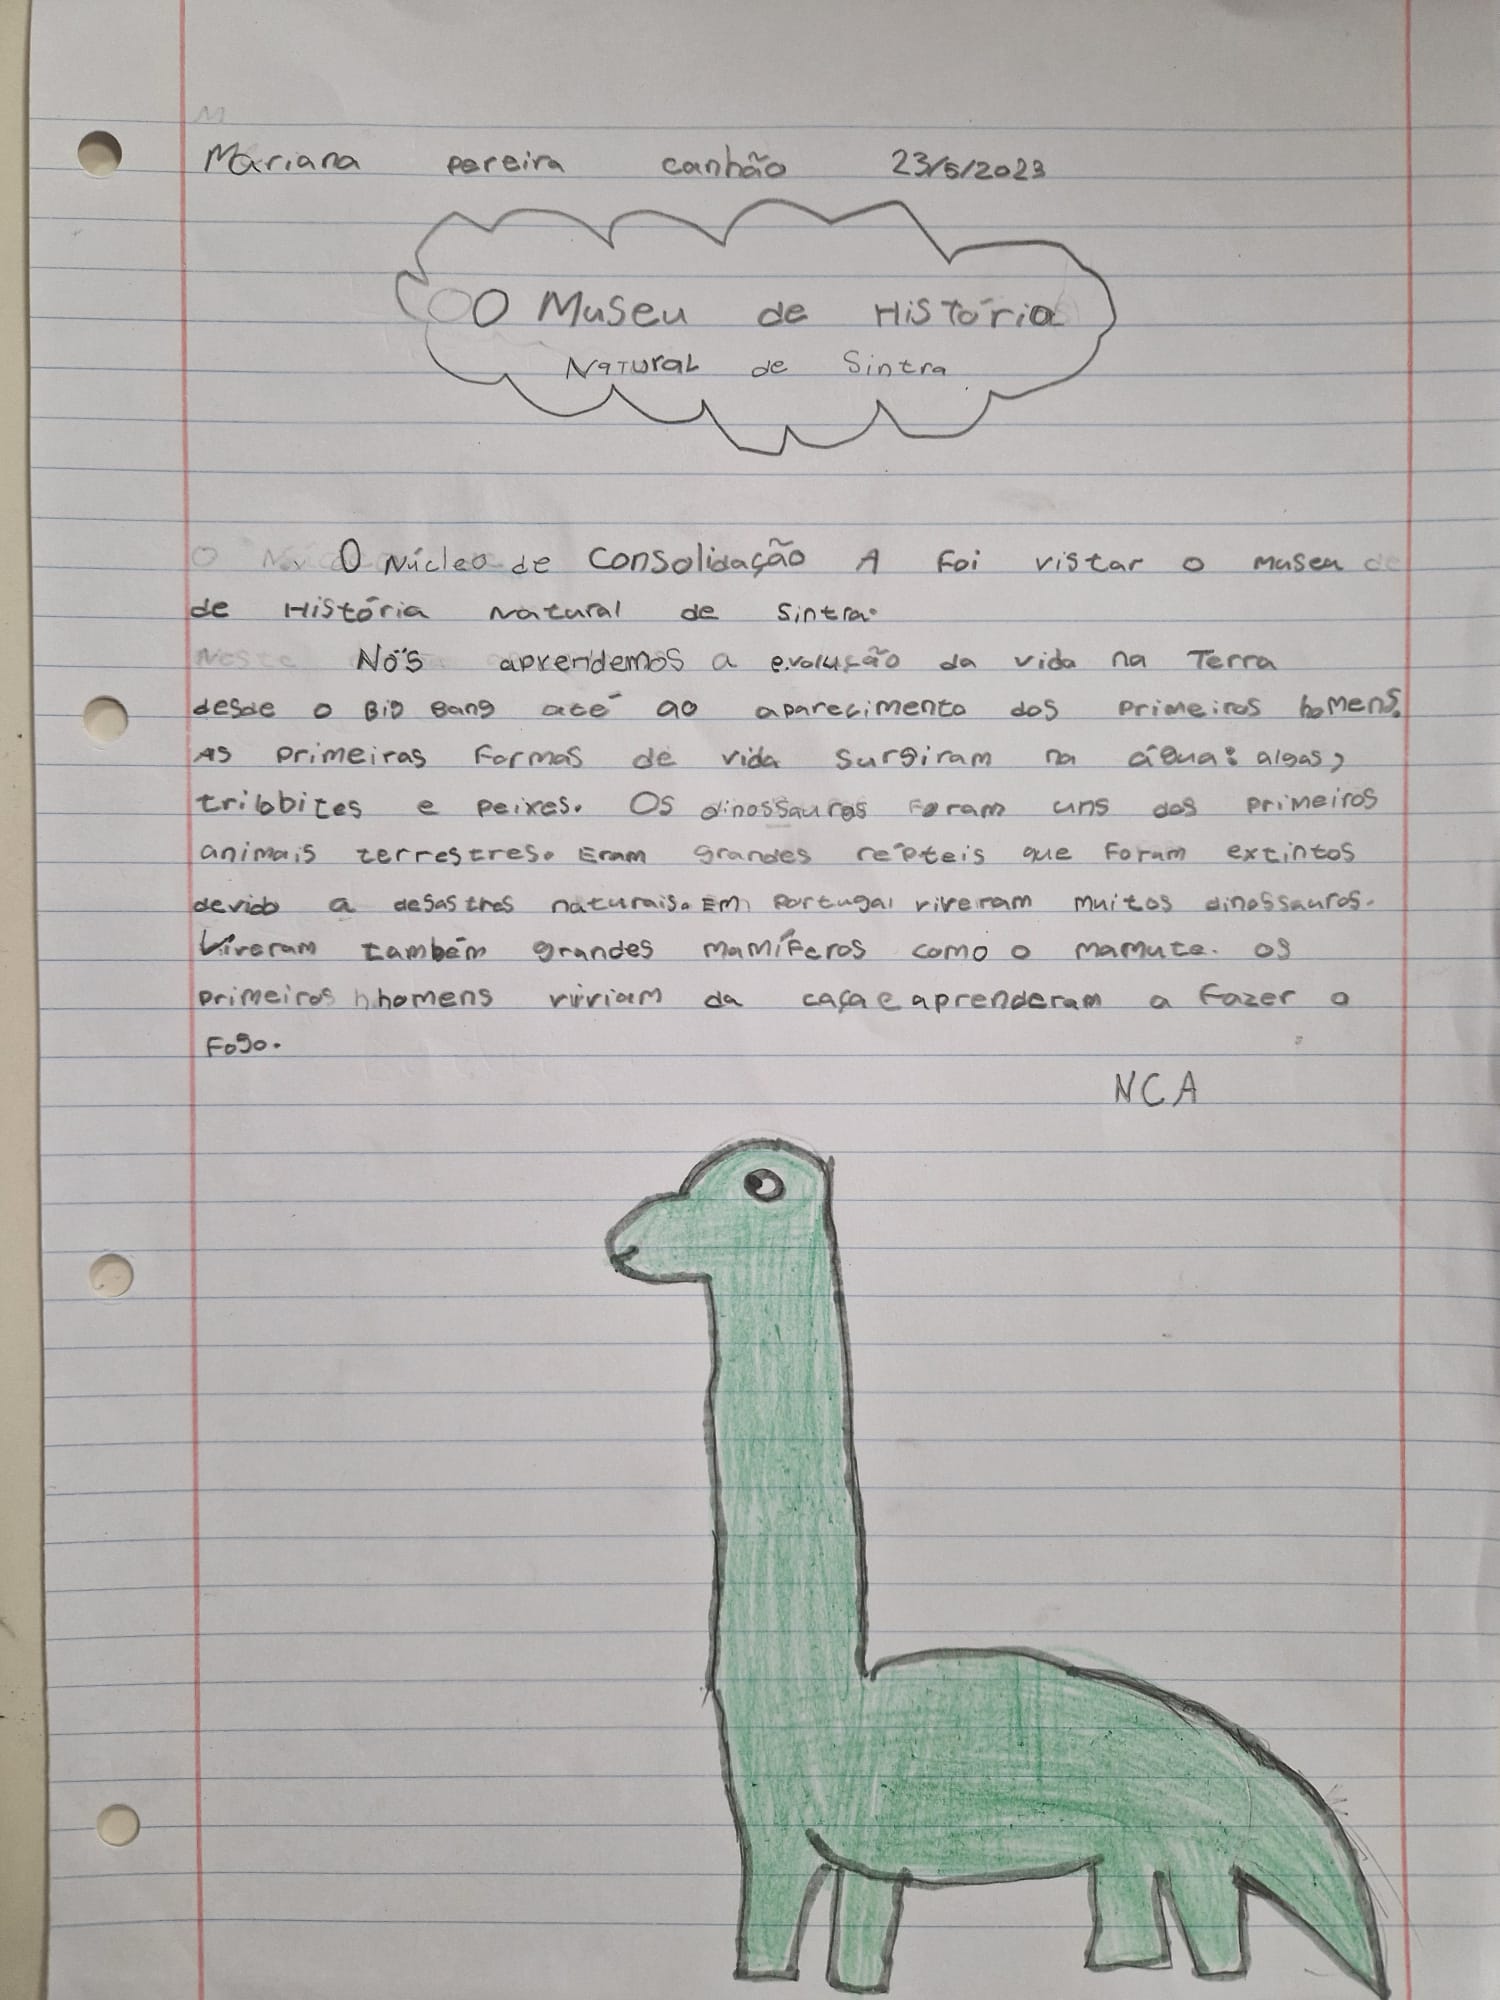 Mariana Pereira Canhão 23/5/2023
O Museu de História
Natural de Sintra
O Núcleo de Consolidação A foi vistar o museu
de História Natural de Sintra.
Nós aprendemos a evolução da vida na Terra
desde o Big Bang até ao aparecimento dos primeiros homens.
As primeiras formas de vida surgiram na água: algas,
trilobites e peixes. Os dinossauros foram uns dos primeiros
animais terrestres. Eram grandes répteis que foram extintos
devido a desastres naturais. Em Portugal viveram muitos dinossauros.
Viveram também grandes mamíferos como o mamute. Os
primeiros homens viviam da caça e aprenderam a fazer o
fogo.
NCA